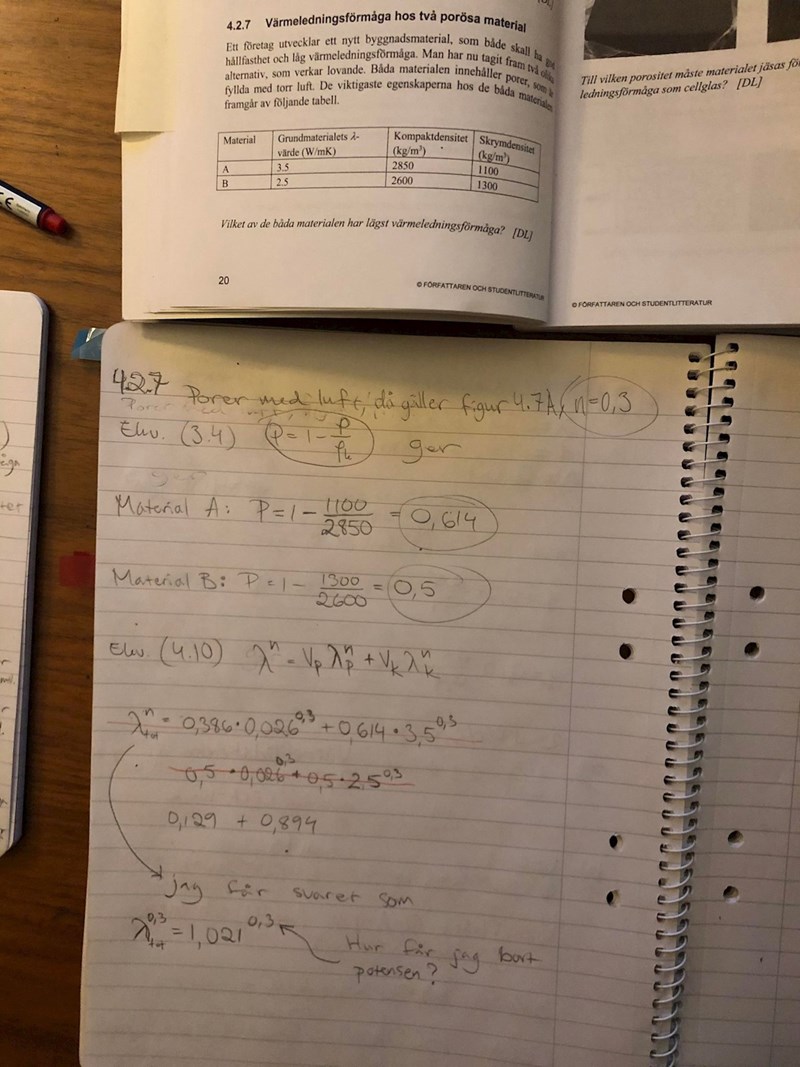 4.2.7 Värmeledningsförmåga hos två porösa material
Ett företag utvecklar ett nytt byggnadsmaterial, som både skall ha god
hållfasthet och låg värmeledningsförmåga. Man har nu tagit fram två olika
alternativ, som verkar lovande. Båda materialen innehåller porer, som är
fyllda med torr luft. De viktigaste egenskaperna hos de båda materialen
framgår av följande tabell.
Material Grundmaterialets λ-värde (W/mK) Kompaktdensitet (kg/m³) Skrymdensitet (kg/m³)
A 3.5 2850 1100
B 2.5 2600 1300
Vilket av de båda materialen har lägst värmeledningsförmåga? [DL]
20
© FÖRFATTAREN OCH STUDENTLITTERATUR
Till vilken porositet måste materialet jäsas
ledningsförmåga som cellglas? [DL]
© FÖRFATTAREN OCH STUDENTLITTERATUR
4.2.7 Porer med luft, då gäller figur 4.7A, n=0,3
Ekv. (3.4) P = 1 - ρ/ρk ger
Material A: P = 1 - 1100/2850 = 0,614
Material B: P = 1 - 1300/2600 = 0,5
Ekv. (4.10) λⁿ = Vp λpⁿ + Vk λkⁿ
λtotⁿ = 0,386 · 0,026^0,3 + 0,614 · 3,5^0,3
0,5 · 0,026^0,3 + 0,5 · 2,5^0,3
0,129 + 0,894
jag får svaret som
λtot^0,3 = 1,021^0,3
Hur får jag bort
potensen?